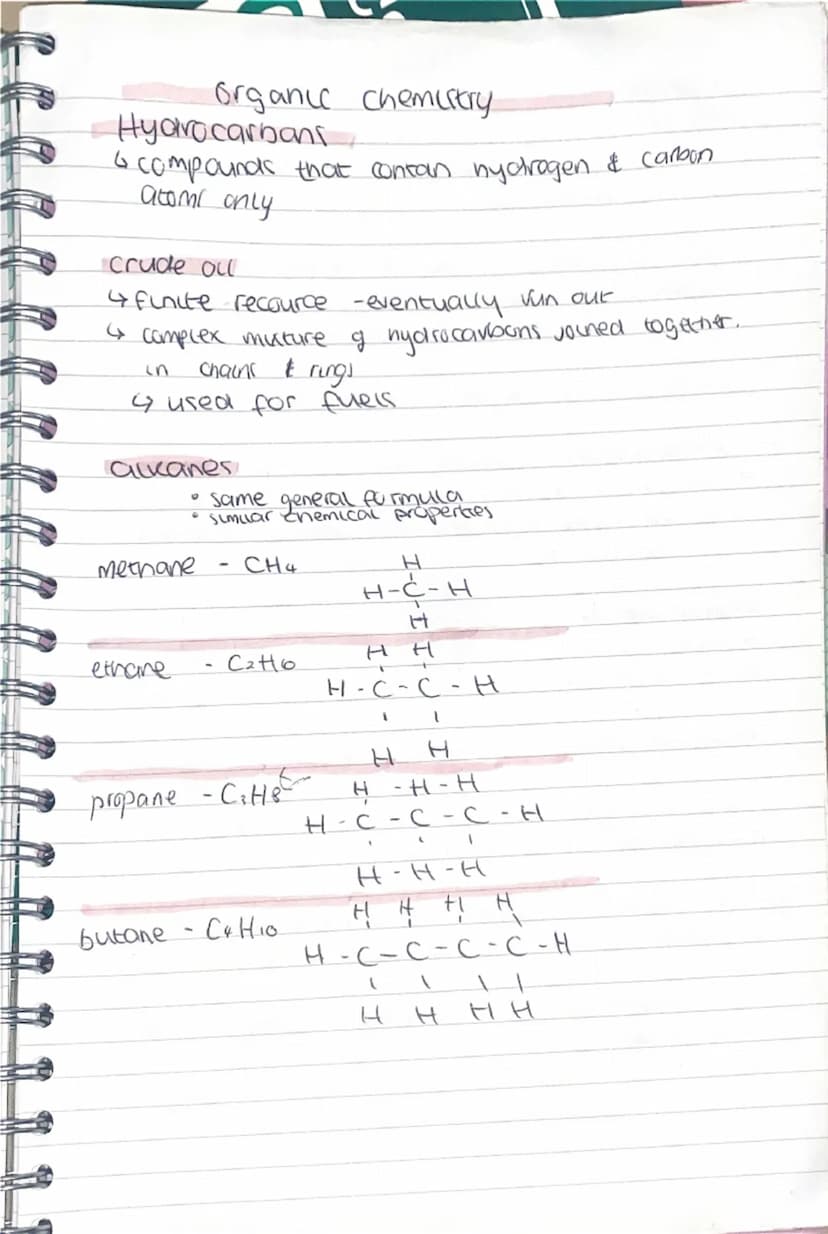 Organic chemistry
Hydrocarbons
↳ compounds that contain hydrogen & carbon
atoms only
crude oil
↳ finite recource - eventually run out
↳ complex mixture of hydrocarbons joined together.
in chains & rings
↳ used for fuels
alkanes
• same general formula
• similar chemical properties
methane - CH4
H
H-C-H
H
ethane - C2H6
H H
H-C-C-H
H H
propane - C3H8
H -H-H
H-C-C-C-H
H-H-H
butane - C4H10
H H H H
H-C-C-C-C-H
H H H H